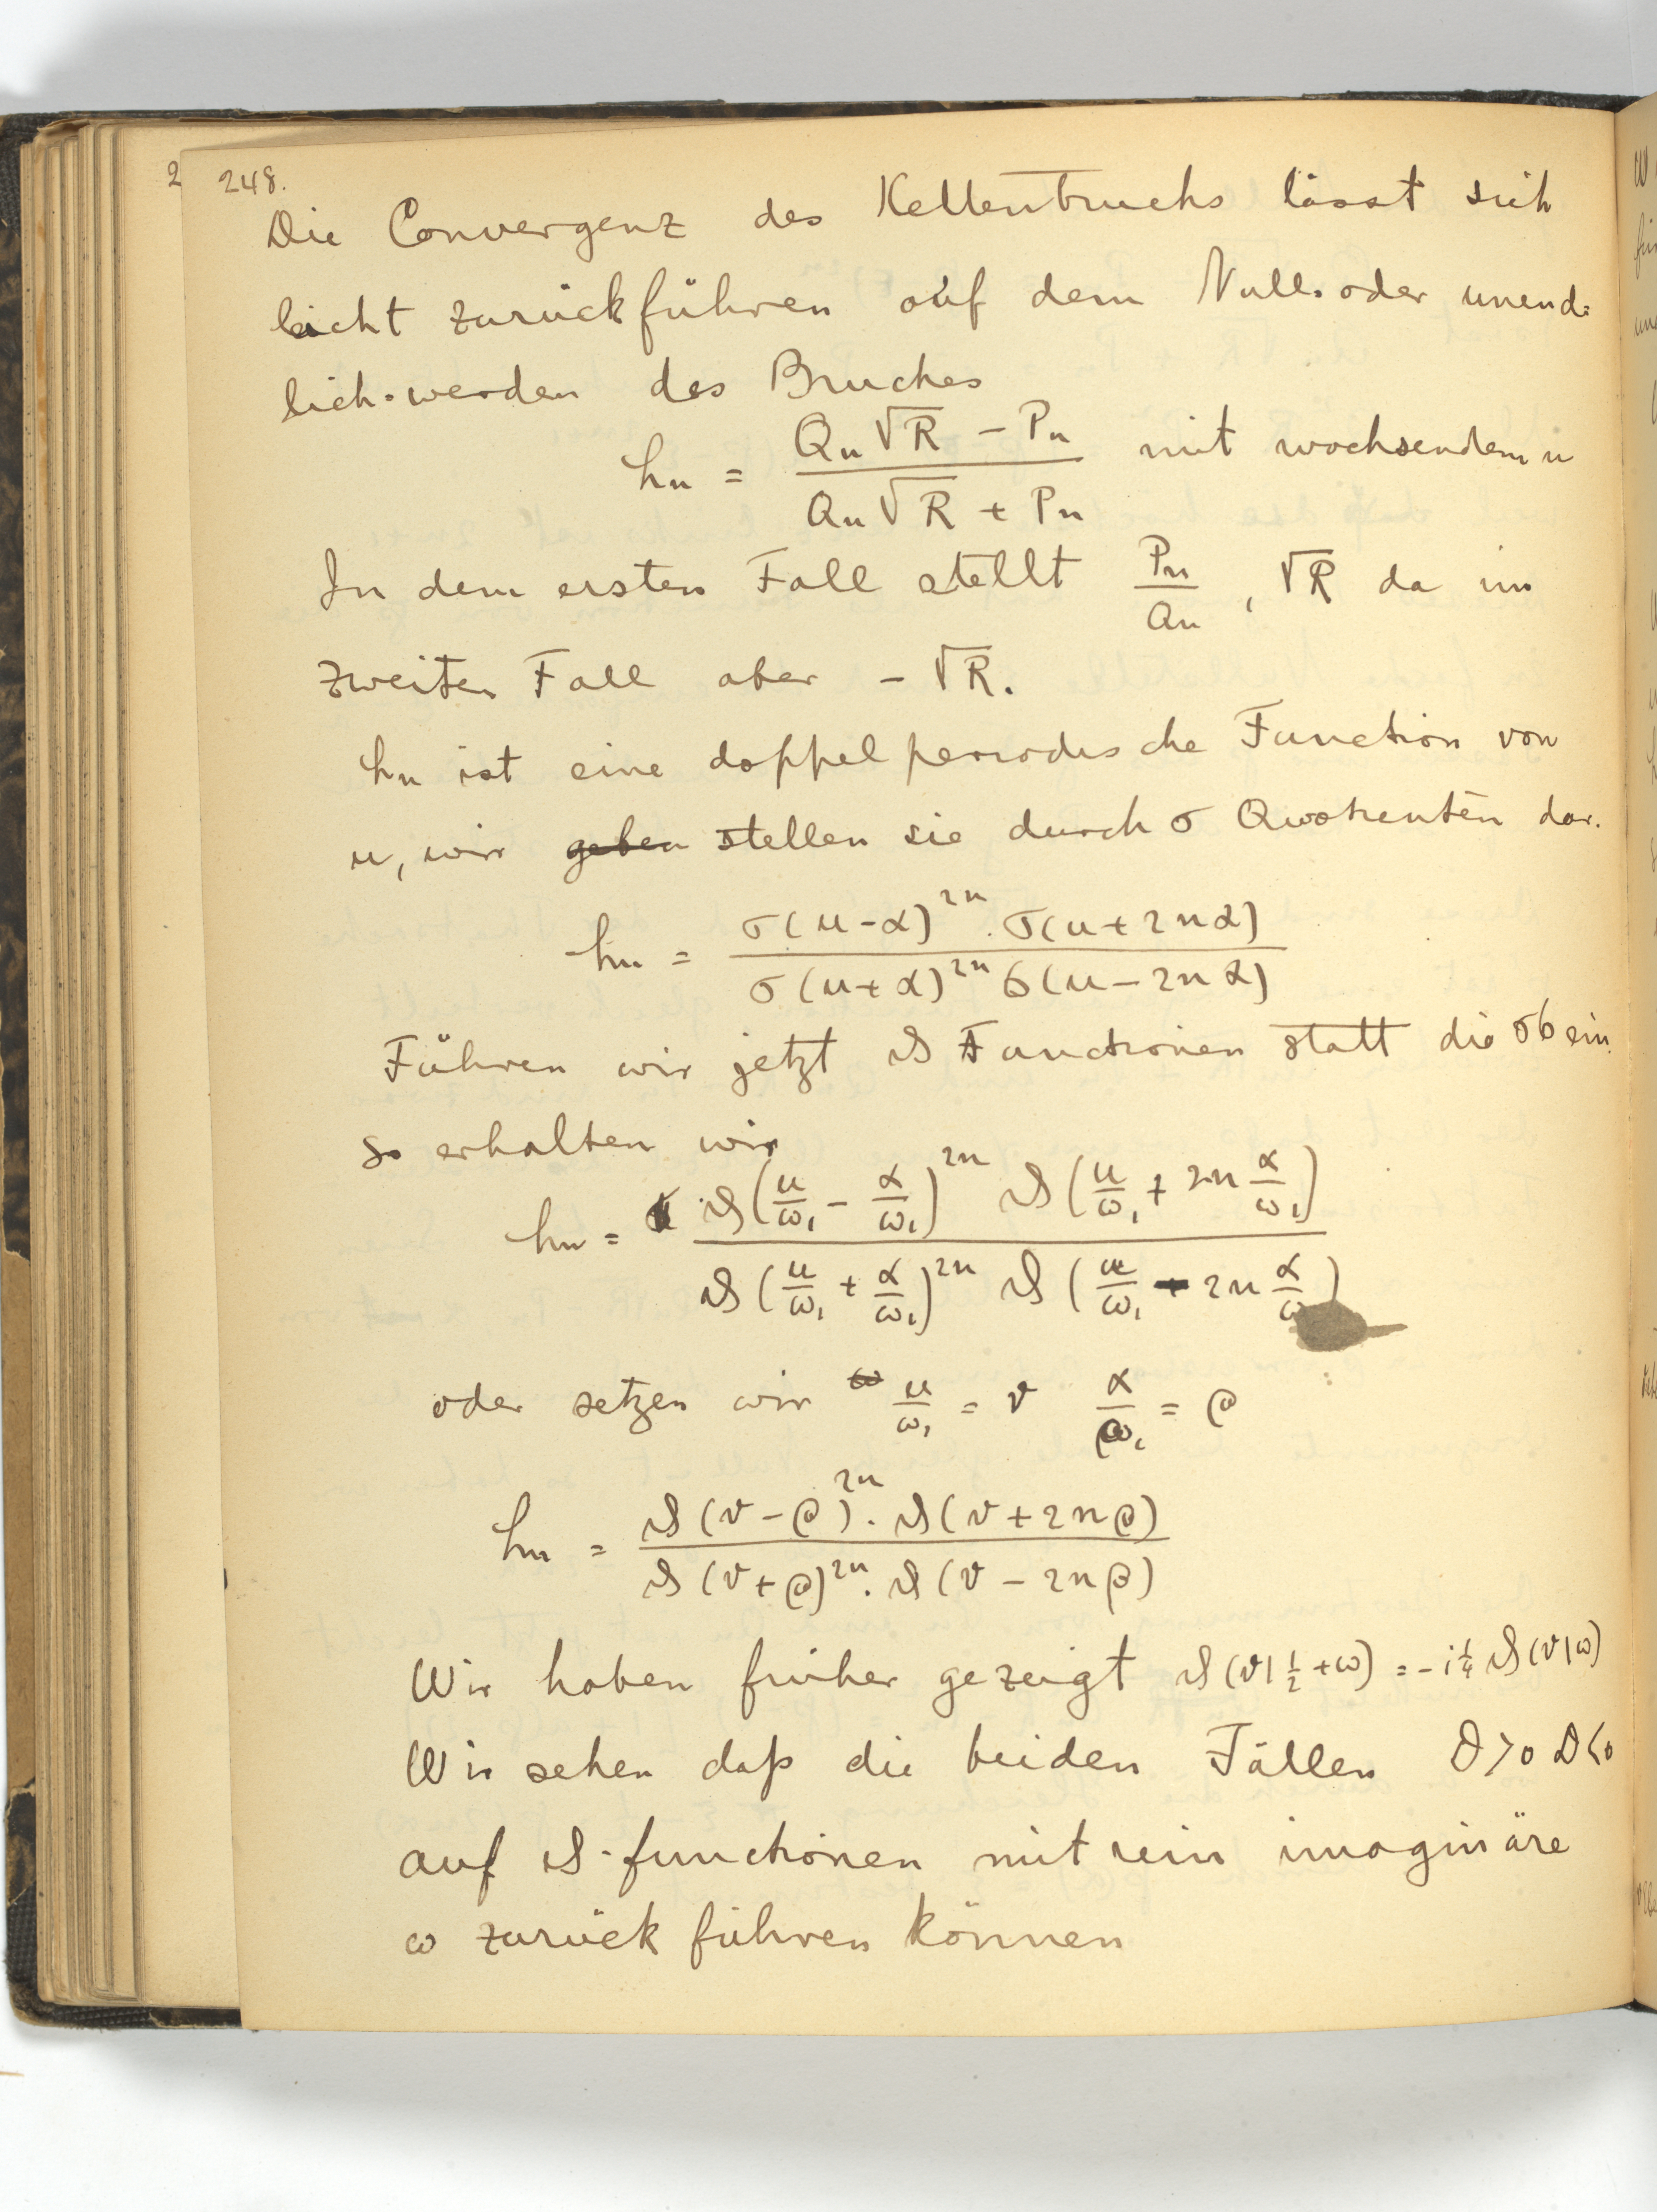 248.
Die Convergenz des Kettenbruchs lässt sich
leicht zurückführen auf dem Null- oder unend-
lich-werden des Bruches
hn = (Qn √R − Pn) / (Qn √R + Pn) mit wachsendem n
In dem ersten Fall stellt Pn/Qn, √R da im
zweiten Fall aber − √R.
hn ist eine doppelperiodische Function von
u, wir geben stellen sie durch σ Quotienten dar.
hn = σ(u−α)^2n . σ(u+2nα) / σ(u+α)^2n σ(u−2nα)
Führen wir jetzt ϑ Functionen statt die σ ein
so erhalten wir
hn = ϑ(u/ω₁ − α/ω₁)^2n ϑ(u/ω₁ + 2n α/ω₁) / ϑ(u/ω₁ + α/ω₁)^2n ϑ(u/ω₁ − 2n α/ω)
oder setzen wir u/ω₁ = v α/ω₁ = ρ
hn = ϑ(v−ρ)^2n . ϑ(v+2nρ) / ϑ(v+ρ)^2n . ϑ(v−2nρ)
Wir haben früher gezeigt ϑ(v|½+ω) = −i¼ ϑ(v|ω)
Wir sehen daß die beiden Fällen D>0 D<0
auf ϑ-functionen mit rein imaginäre
ω zurück führen können